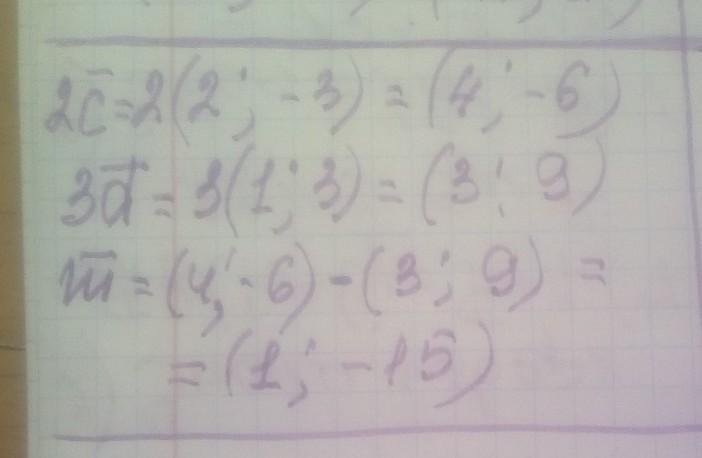 2c̄=2(2; -3) = (4; -6)
3d̄ = 3(1; 3) = (3; 9)
m̄ = (4; -6) - (3; 9) =
= (1; -15)